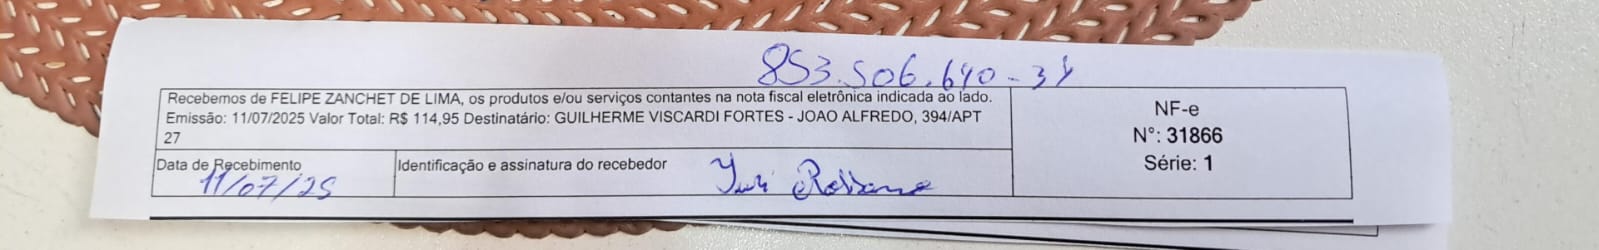 853.506.640-34
Recebemos de FELIPE ZANCHET DE LIMA, os produtos e/ou serviços contantes na nota fiscal eletrônica indicada ao lado.
Emissão: 11/07/2025 Valor Total: R$ 114,95 Destinatário: GUILHERME VISCARDI FORTES - JOAO ALFREDO, 394/APT
27
NF-e
N°: 31866
Série: 1
Data de Recebimento
11/07/25
Identificação e assinatura do recebedor
Yuri